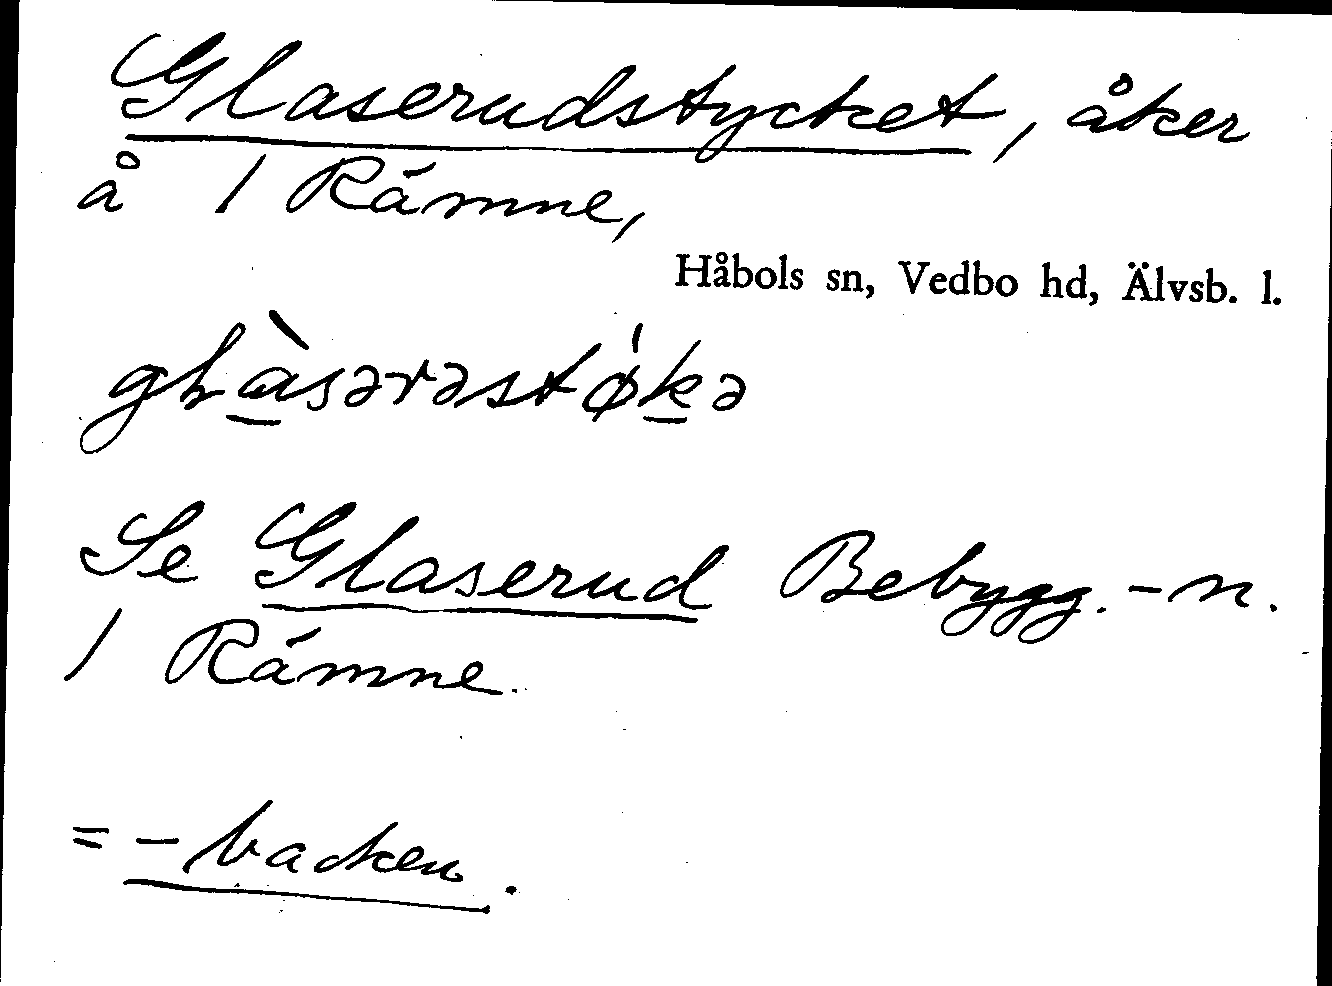 Glaserudstycket, åker
å 1 Rämne,
Håbols sn, Vedbo hd, Älvsb. l.
Se Glaserud Bebygg.-n.
1 Rämne.
= -backen.